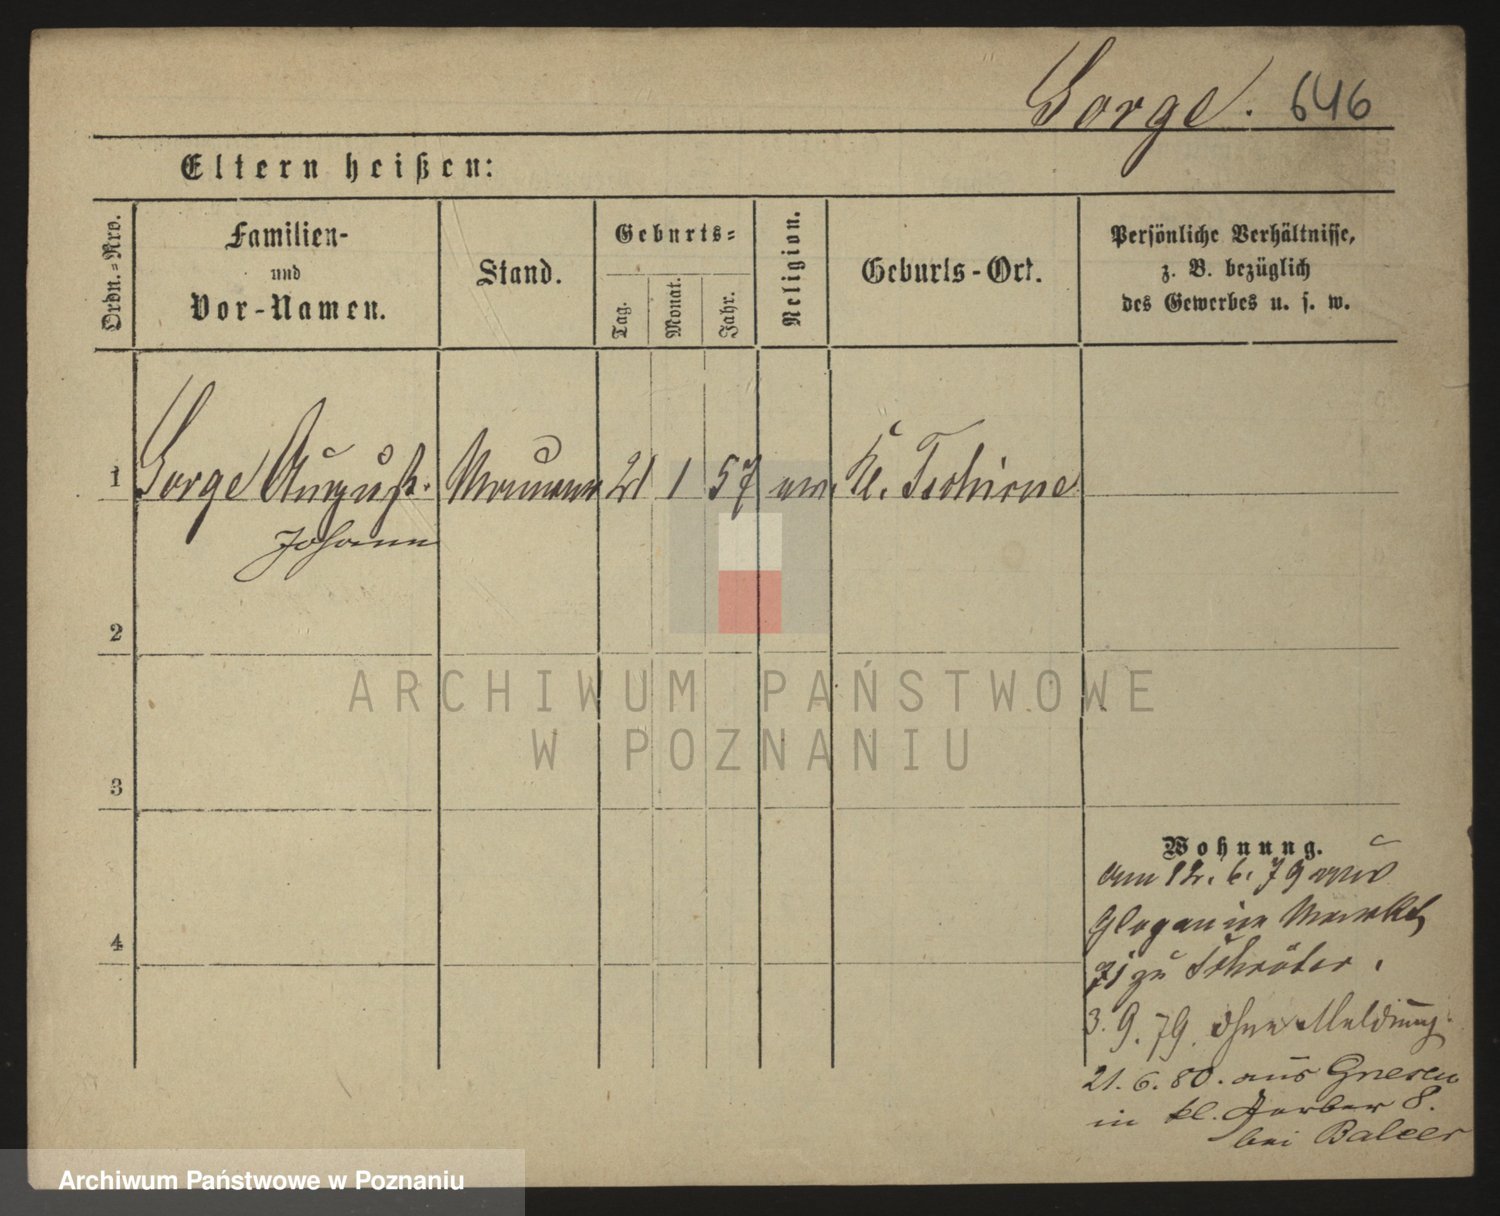 Sorge. 646
Eltern heißen:
Ordn.-Nro.
Familien-
und
Vor-Namen.
Stand.
Geburts-
Tag.
Monat.
Jahr.
Religion.
Geburts-Ort.
Persönliche Verhältnisse,
z. B. bezüglich
des Gewerbes u. s. w.
1 Sorge August. 21 1 57 ev. Kl. Tschirne
Johann
2
3
4
Wohnung.
am 12. 6. 79 aus
Glogau in Markt
zu Schröter.
3. 9. 79. ohne Meldung.
21. 6. 80. aus Gnesen
in kl. Gerber 8.
bei Balcer
ARCHIWUM PAŃSTWOWE
W POZNANIU
Archiwum Państwowe w Poznaniu